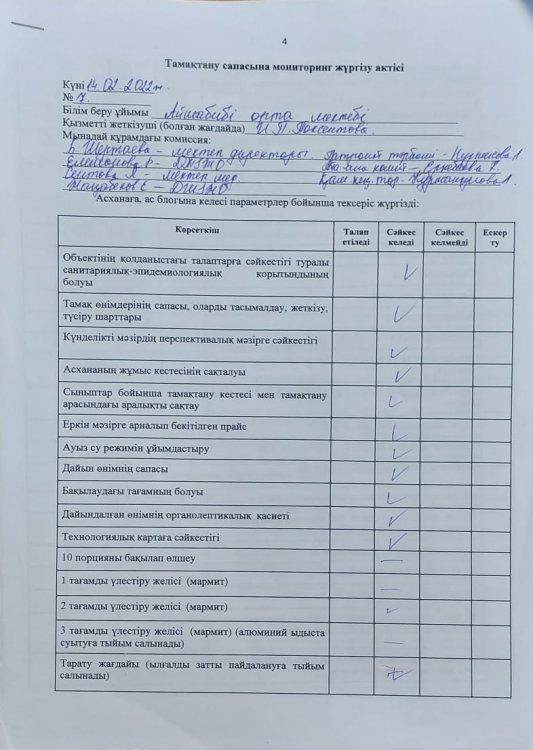 4
Тамақтану сапасына мониторинг жүргізу актісі
Күні 14.02.2022ж.
№ 7.
Білім беру ұйымы Айшабибі орта мектебі
Қызметті жеткізуші (болған жағдайда) И.П.
Мынадай құрамдағы комиссия:
Б. Шентаева – мектеп директоры.
Р –
– мектеп мед.
Е –
Асханаға, ас блогына келесі параметрлер бойынша тексеріс жүргізді:
Көрсеткіш Талап етіледі Сәйкес келеді Сәйкес келмейді Ескерту
Объектінің қолданыстағы талаптарға сәйкестігі туралы
санитариялық-эпидемиологиялық қорытындының
болуы ✓
Тамақ өнімдерінің сапасы, оларды тасымалдау, жеткізу,
түсіру шарттары ✓
Күнделікті мәзірдің перспективалық мәзірге сәйкестігі ✓
Асхананың жұмыс кестесінің сақталуы ✓
Сыныптар бойынша тамақтану кестесі мен тамақтану
арасындағы аралықты сақтау ✓
Еркін мәзірге арналып бекітілген прайс ✓
Ауыз су режимін ұйымдастыру ✓
Дайын өнімнің сапасы ✓
Бақылаудағы тағамның болуы ✓
Дайындалған өнімнің органолептикалық қасиеті ✓
Технологиялық картаға сәйкестігі ✓
10 порцияны бақылап өлшеу —
1 тағамды үлестіру желісі (мармит) —
2 тағамды үлестіру желісі (мармит) ✓
3 тағамды үлестіру желісі (мармит) (алюминий ыдыста
суытуға тыйым салынады) —
Тарату жағдайы (ылғалды затты пайдалануға тыйым
салынады)